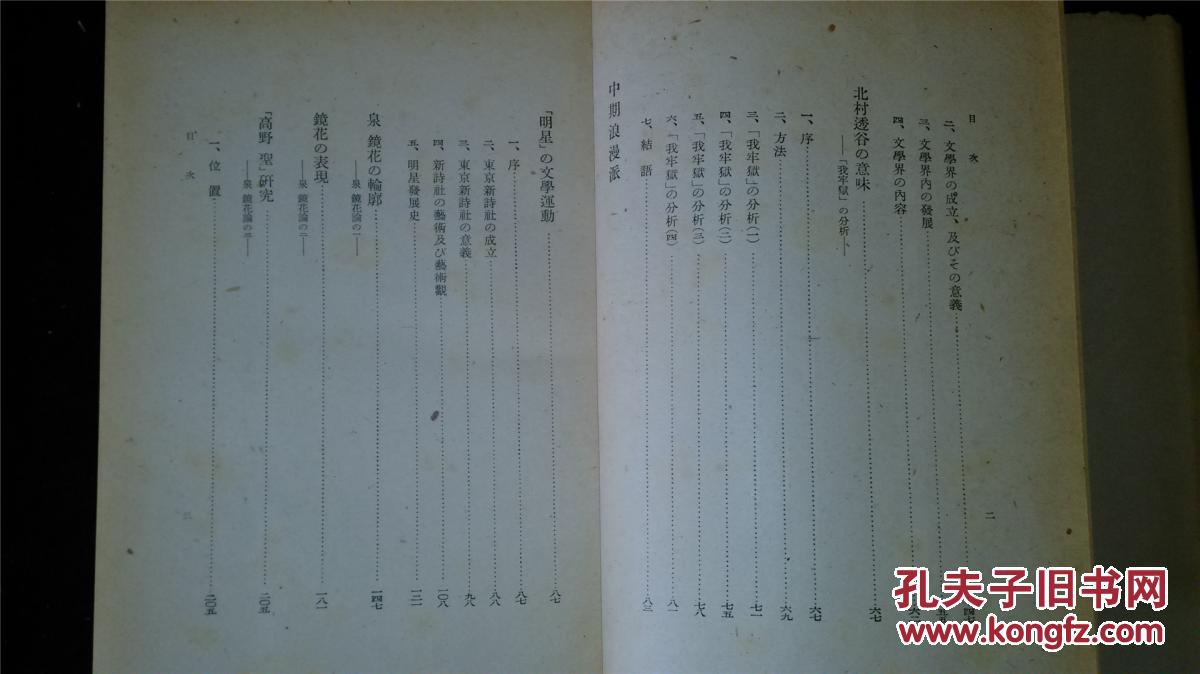 目次
二
二、文學界の成立、及びその意義
三、文學界內の發展
四、文學界の內容
北村透谷の意味 六七
――「我牢獄」の分析――
一、序 六七
二、方法 六九
三、「我牢獄」の分析(一) 七一
四、「我牢獄」の分析(二) 七五
五、「我牢獄」の分析(三) 七八
六、「我牢獄」の分析(四) 八一
七、結語 八三
中期浪漫派
「明星」の文學運動 八七
一、序 八七
二、東京新詩社の成立 八八
三、東京新詩社の意義 九八
四、新詩社の藝術及び藝術觀 一〇八
五、明星發展史 一二一
泉 鏡花の輪廓 一四七
――泉 鏡花論の一――
鏡花の表現 一八一
――泉 鏡花論の二――
「高野 聖」硏究 二〇五
――泉 鏡花論の三――
一、位置 二〇五
目次
三
孔夫子旧书网
www.kongfz.com